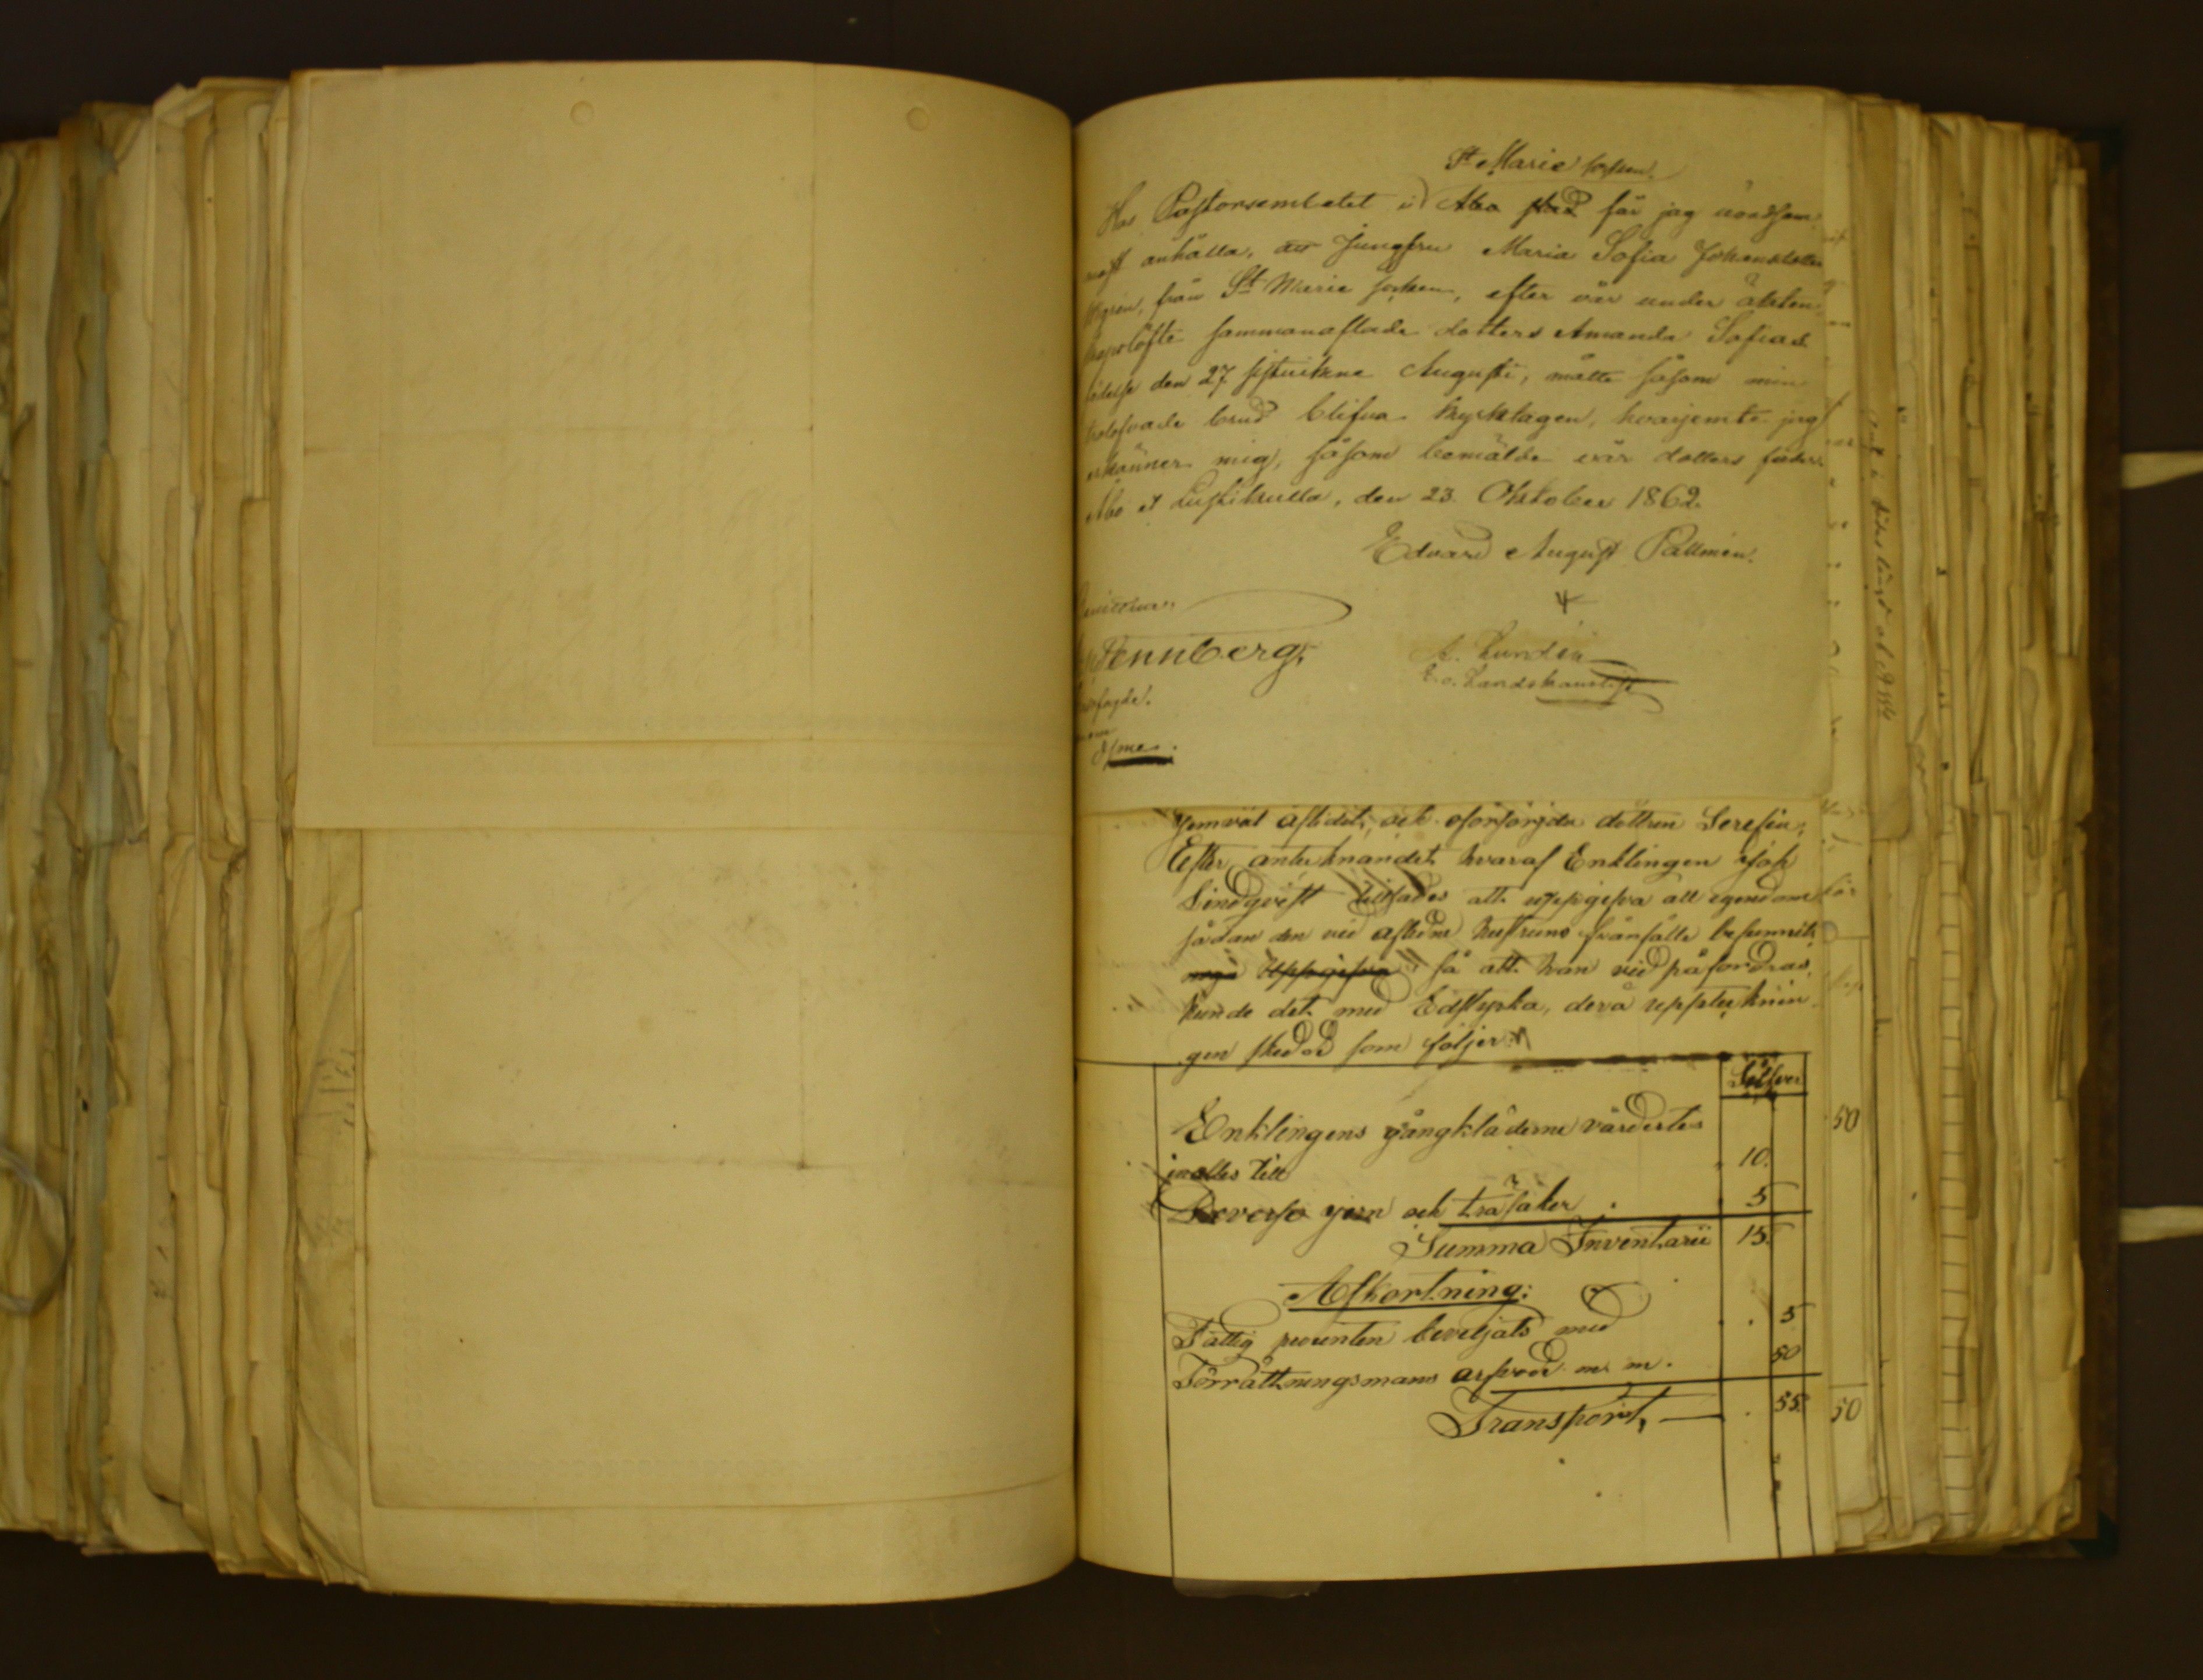 St Marie socken.
Hos Pastorsembetet i Åbo stad får jag vördsam
mast anhålla, att Jungfrun Maria Sofia Johansdotter
från St Marie socken, efter vår under äkten
skapslöfte sammanaflade dotters Amanda Sofias
födelse den 27 sistvikne Augusti, måtte såsom min
trolofvade brud blifva kyrktagen, hvarjemte jag
erkänner mig, såsom bemälde vår dotters fader.
Åbo et Lustikulla, den 23. Oktober 1862.
Edvard August Pallmén.
Bevittnar:
Stennberg,
A. Lundén
E. o. Landskanslist
jemväl aflidit, och oförsörjda dottren Serefia;
Efter antecknandet hvaraf Enklingen Isak
Lindqvist tillsades att uppgifva all egendom
sådan den vid aflidne hustruns frånfälle befunnits
uppgifva så att han vid påfordras
kunde det med Ed styrka, derå upptecknin
gen skedde som följer
Silfver
Enklingens gångkläderne värdertes
inalles till 10.
Diverse jern och träsaker . 5
Summa Inventarii 15.
Afkortning:
Fattig procenten beviljats med . . 5
Förrättningsmans arfvode m. m. 50
Transport, — . 55.
50
50